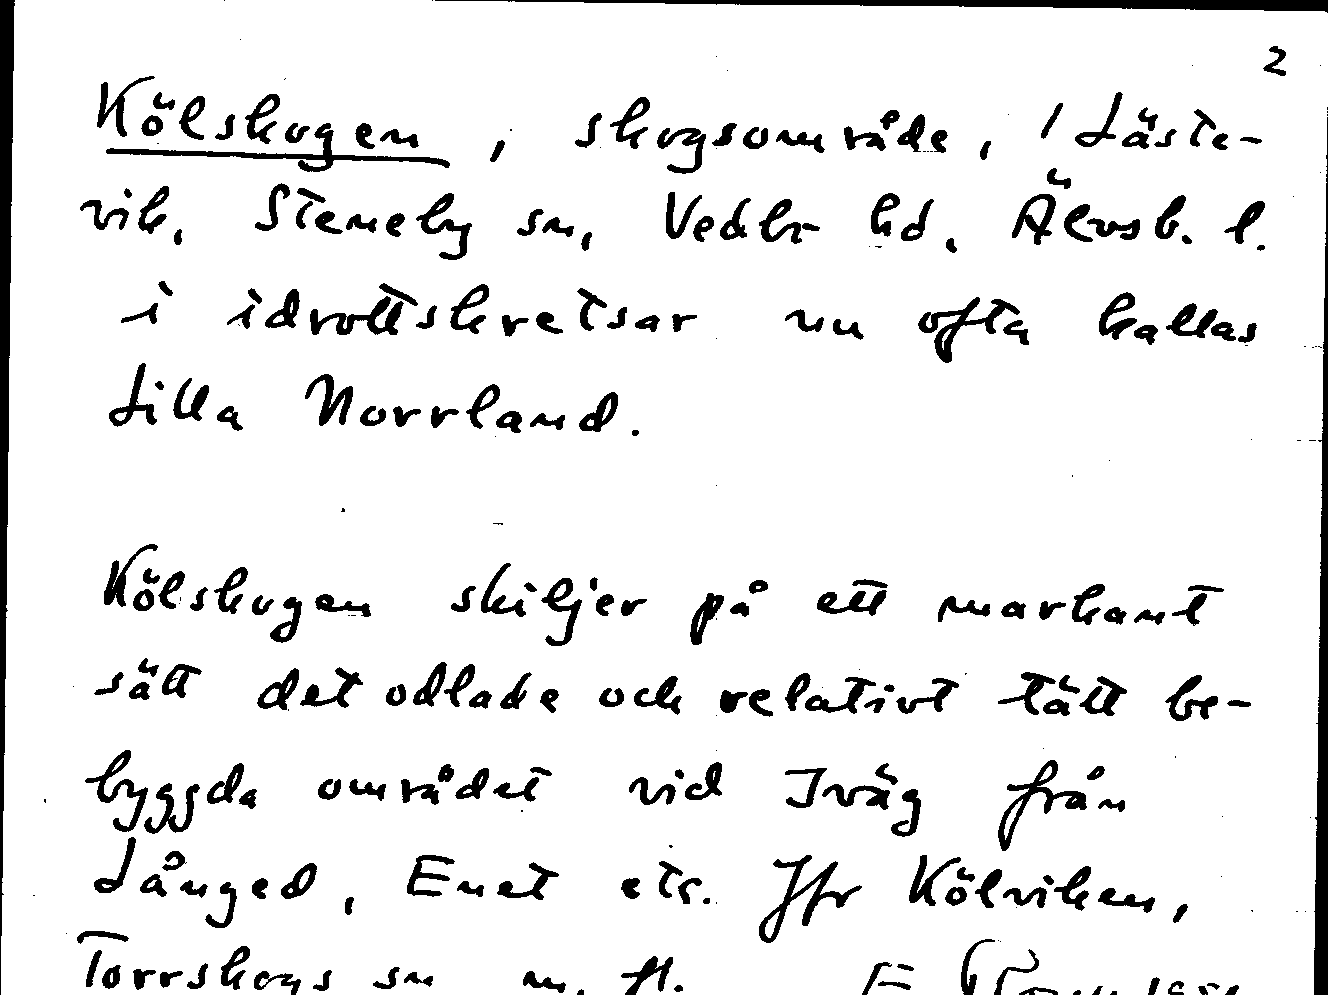 2
Kölskogen, skogsområde, / Läste-
vik, Steneby sn, Vedbo hd, Älvsb. l.
i idrottskretsar nu ofta kallas
Lilla Norrland.
Kölskogen skiljer på ett markant
sätt det odlade och relativt tätt be-
byggda området vid Iväg från
Långed, Enet etc. Jfr Kölviken,
Torrskogs sn m. fl.